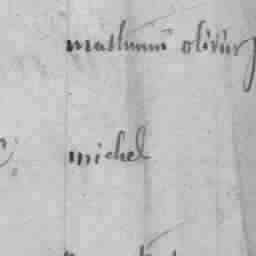 mathurin olivier
michel